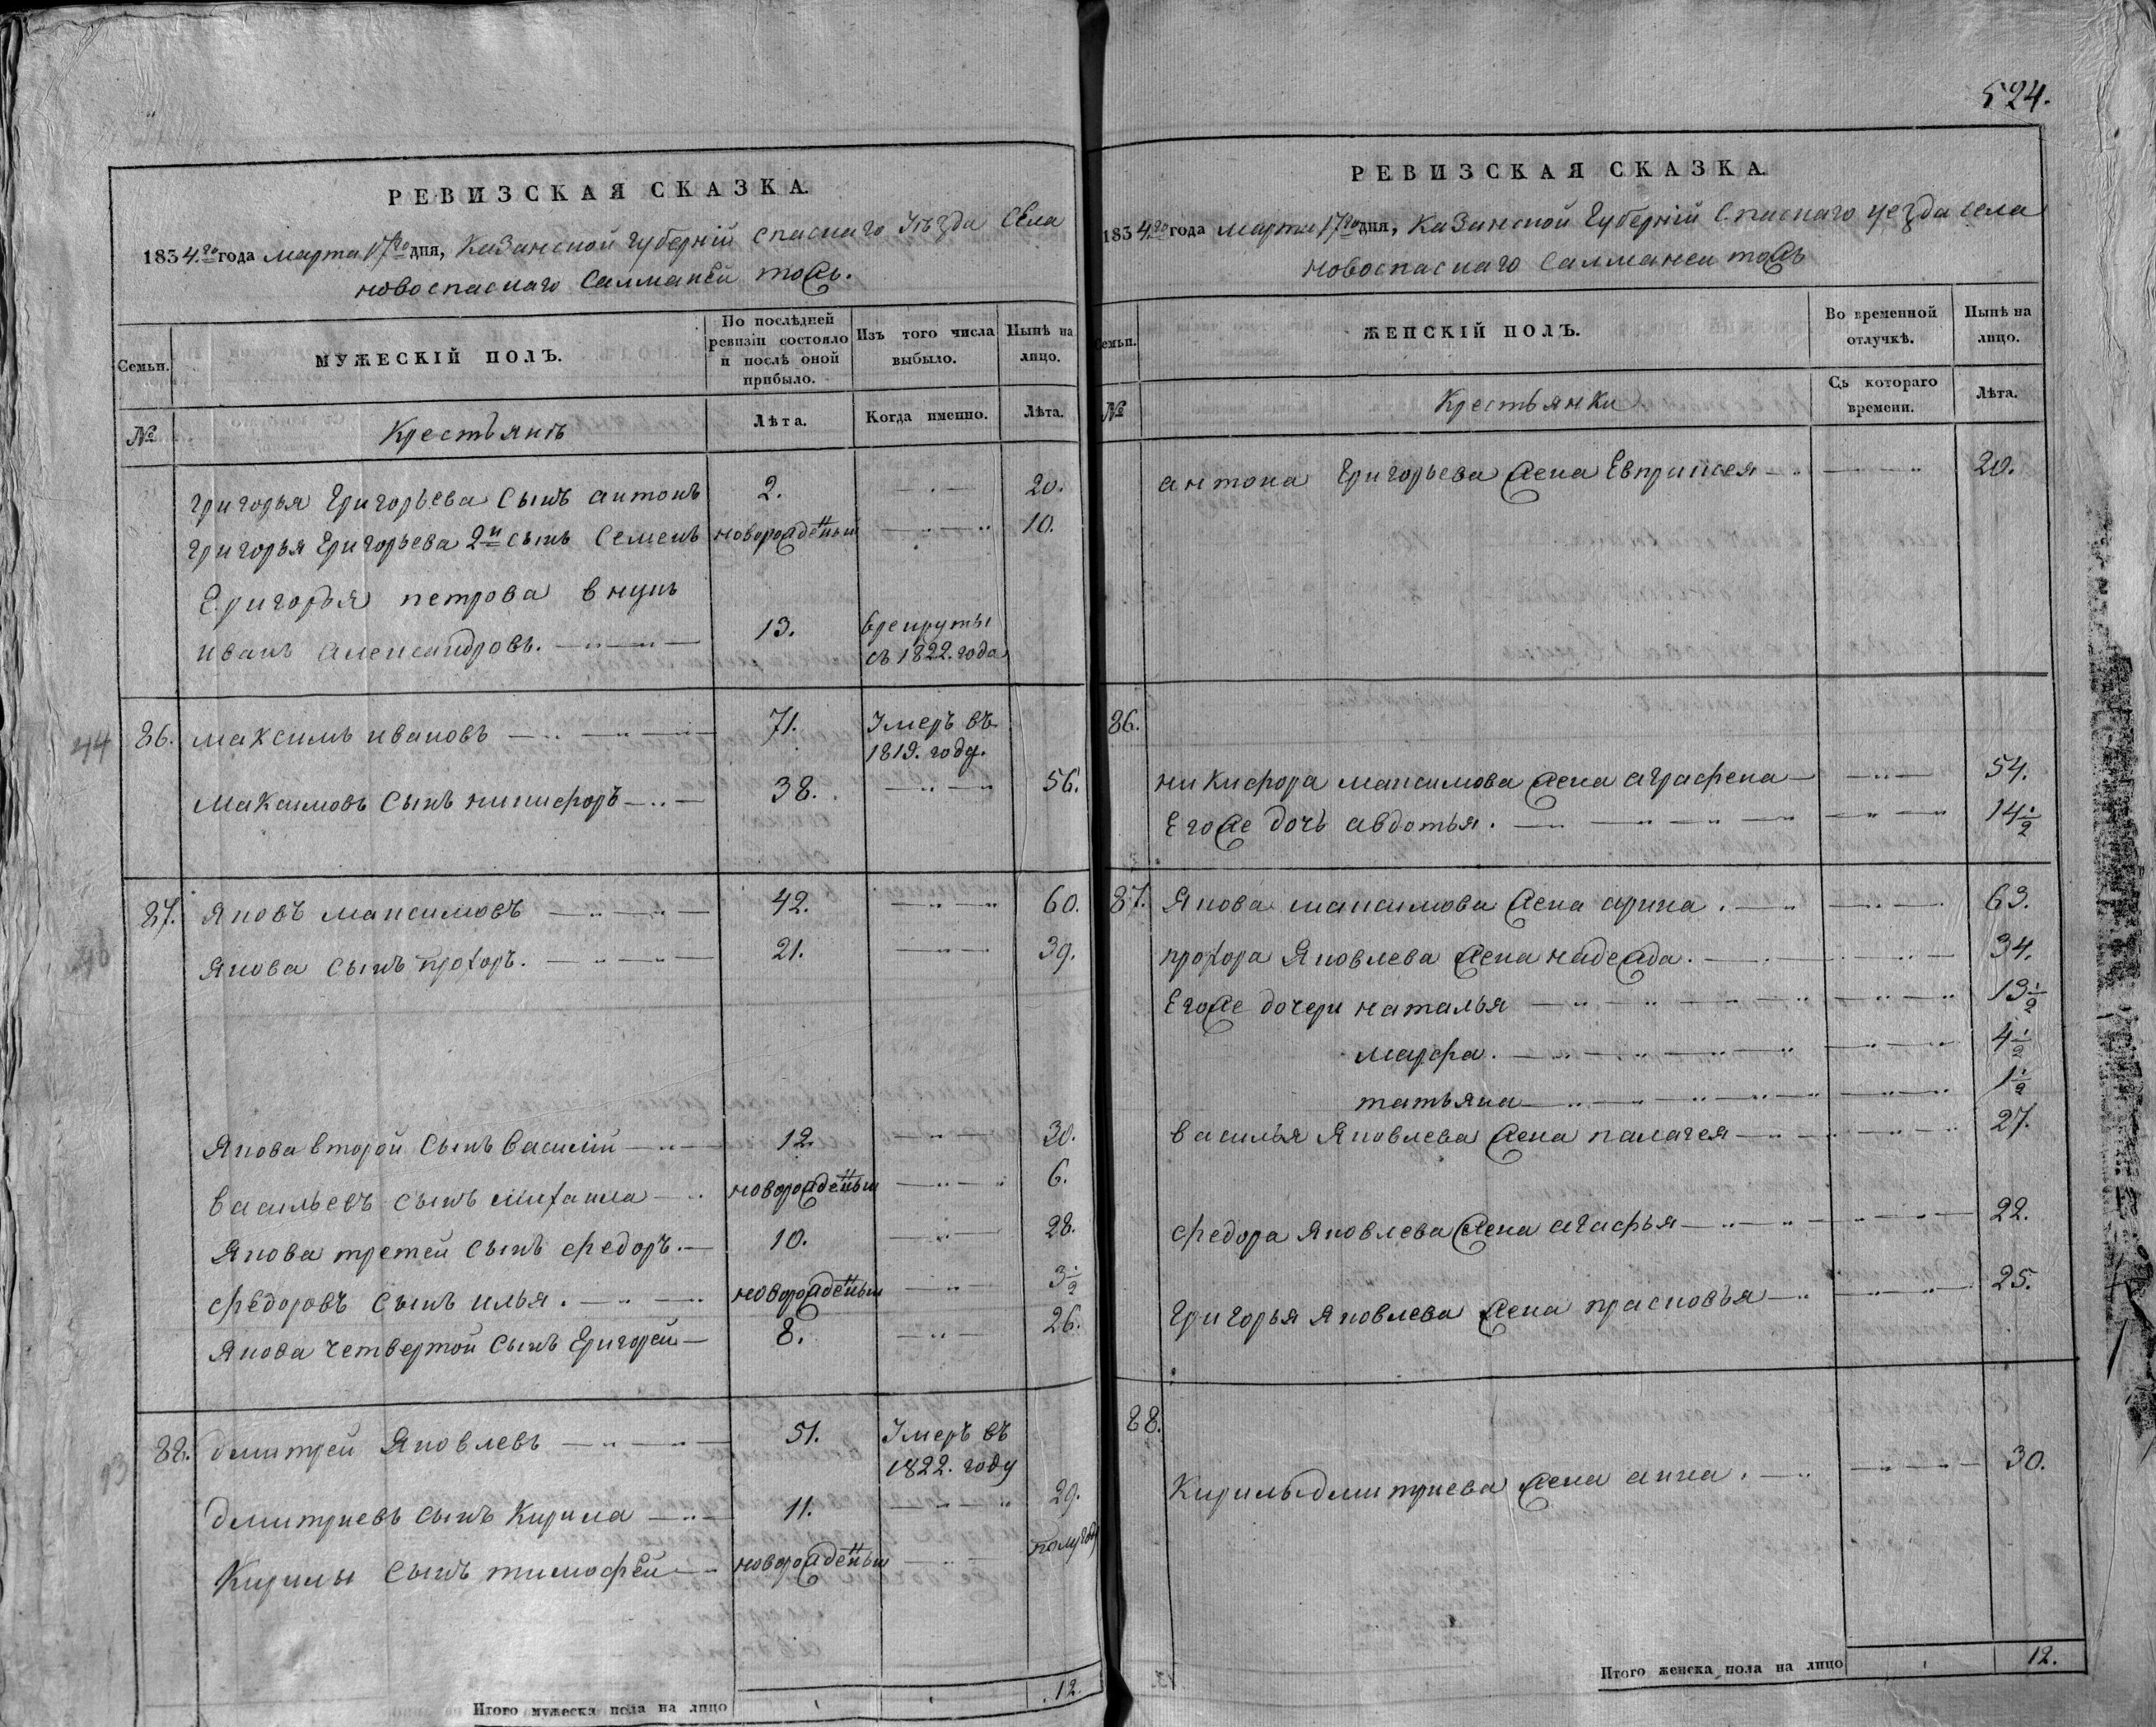 524.
РЕВИЗСКАЯ СКАЗКА.
1834.го года марта 17го дня, Казанской губерніи спаскаго уѣзда села
новоспаскаго салманеи тожъ.
Семьи.
МУЖЕСКІЙ ПОЛЪ.
По послѣдней ревизіи состояло и послѣ оной прибыло.
Изъ того числа выбыло.
Нынѣ на лицо.
№
Крестьянъ
Лѣта.
Когда именно.
Лѣта.
григорья Григорьева сынъ антонъ 2. 20.
григорья Григорьева 2й сынъ Семенъ новорожденныи 10.
Григорья петрова внукъ
иванъ александровъ. 13. врекруты
съ 1822. года
44 86. максимъ ивановъ 71. Умеръ въ
1819. году.
Максимовъ сынъ никифоръ 38. 56.
87. Яковъ максимовъ 42. 60.
Якова сынъ прохоръ. 21. 39.
Якова второй сынъ василій 12. 30.
васильевъ сынъ михаила новорожденныи 6.
Якова третей сынъ федоръ. 10. 28.
федоровъ сынъ илья. новорожденныи 3 1/2
Якова четвертой сынъ Григорей 8. 26.
88. дмитрей Яковлевъ 51. Умеръ въ
1822. году
дмитриевъ сынъ Кирила 11. 29.
Кирилы сынъ тимофѣй новорожденныи полугоду
Итого мужеска пола на лицо 12.
РЕВИЗСКАЯ СКАЗКА.
1834.го года марта 17го дня, Казанской Губерніи Спаскаго уезда села
новоспаскаго салманеи тожъ
Семьи.
ЖЕНСКІЙ ПОЛЪ.
Во временной отлучкѣ.
Нынѣ на лицо.
№
Крестьянки
Съ котораго времени.
Лѣта.
антона Григорьева жена Евпраксея 20.
86.
никифора максимова жена аграфена 54.
Егоже дочь авдотья. 14 1/2
87. Якова максимова жена арина. 63.
прохора Яковлева жена надежда. 34.
Егоже дочери наталья 13 1/2
марфа. 4 1/2
татьяна 1 1/2
василья Яковлева жена палагея 27.
федора Яковлева жена агафья 22.
григорья Яковлева жена прасковья 25.
88.
Кирилы дмитриева жена анна. 30.
Итого женска пола на лицо 12.